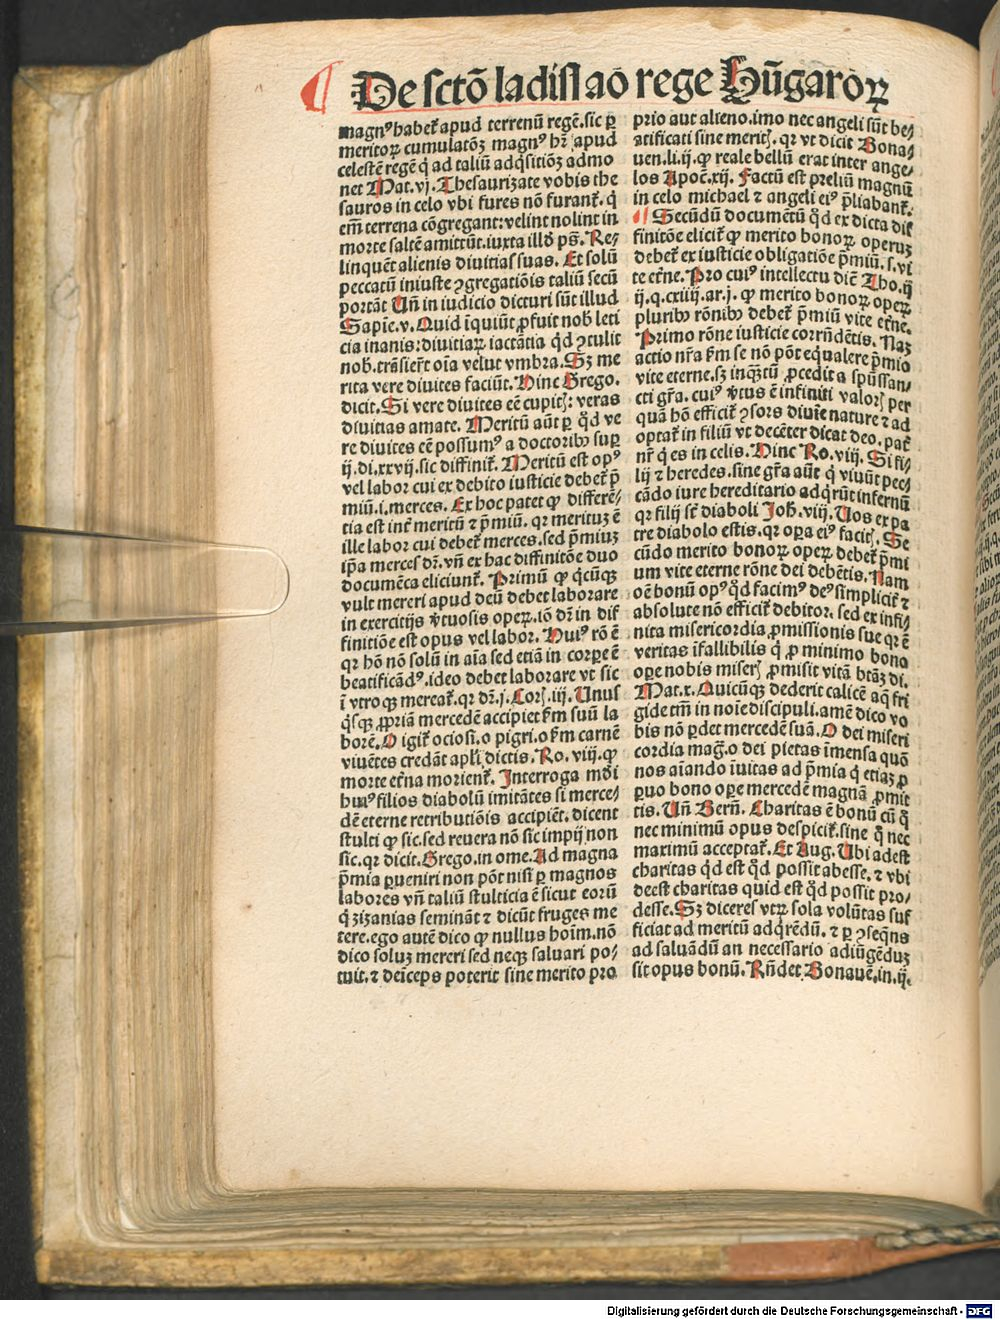 De sctō ladislao rege Hūgaroꝝ
magnꝰ habet᷑ apud terrenū regē. sic ꝑ
meritoꝝ cumulatōꝫ magnꝰ hr̄ apud
celestē regē q̇ ad taliū adq̇sitiōꝫ admo
net Mat. vj. Thesaurizate vobis the
sauros in celo vbi fures nō furant᷑. q̇
em̄ terrena cōgregant: velint nolint in
morte saltē amittūt. iuxta illḋ ps̄. Re⸗
linquēt alienis diuitias suas. Et solū
peccatū iniuste ꝯgregatiōis taliū secū
portāt Un̄ in iudicio dicturi sūt illud
Sapiē. v. Quid īquiūt ꝓfuit nob̄ leti
cia inanis: diuitiaꝝ iactātia q̇d ꝯtulit
nob̄. trāsier̄t oīa velut vmbra. Sꝫ me
rita vere diuites faciūt. Hinc Grego.
dicit. Si vere diuites eē cupitꝭ: veras
diuitias amate. Meritū aūt ꝑ qd̄ ve
re diuites eē possumꝰ a doctoribꝰ suꝑ
ij. di. xxvij. sic diffinit᷑. Meritū est opꝰ
vel labor cui ex debito iusticie debet᷑ p̄
miū. i. merces. Ex hoc patet ꝙ differē⸗
tia est int᷑ meritū ⁊ p̄miū. qr merituꝫ ē
ille labor cui debet᷑ merces. sed p̄miuꝫ
ip̄a merces dr̄. vn̄ ex hac diffinitōe duo
documēca eliciunt᷑. Primū ꝙ q̇cūqꝫ
vult mereri apud deū debet laborare
in exercitijs v̓tuosis opeꝝ. iō dr̄ in dif
finitiōe est opus vel labor. Huiꝰ rō ē
qr hō nō solū in aīa sed etiā in corꝑe ē
beatificādꝰ. ideo debet laborare vt sic
ī vtroqꝫ mereat᷑. qr dr̄. j. Corꝭ. iij. Unus
q̇sqꝫ ꝓpriā mercedē accipiet ẜm suū la
borē. O igit᷑ ociosi. o pigri. o ẜm carnē
viuētes credāt apl̄i dictis. Ro. viij. ꝙ
morte et̓na morient᷑. Interroga mōi
huiꝰ filios diabolū imitātes si merce⸗
dē eterne retributiōis accipiēt. dicent
stulti ꝙ sic. sed reuera nō sic impij non
sic. qr dicit. Grego. in ome. Ad magna
p̄mia ꝑueniri non pōt nisi ꝑ magnos
labores vn̄ taliū stulticia ē sicut eorū
q̇ zizanias semināt ⁊ dicūt fruges me
tere. ego autē dico ꝙ nullus hoīm. nō
dico soluꝫ mereri sed neqꝫ saluari po⸗
tuit. ⁊ deīceps poterit sine merito pro
prio aut alieno. imo nec angeli sūt be⸗
atificati sine meritꝭ. qr vt dicit Bona⸗
uen. li. ij. ꝙ reale bellū erat inter ange⸗
los Apoc̄. xij. Factū est preliū magnū
in celo michael ⁊ angeli eiꝰ p̄liabant᷑.
¶ Secūdū documētū qd̄ ex dicta dif
finitōe elicit᷑ ꝙ merito bonoꝝ operuꝫ
debet᷑ ex iusticie obligatiōe p̄miū. s. vi
te et̓ne. Pro cuiꝰ intellectu diē Tho. ij
ij. q. cxiiij. ar. j. ꝙ merito bonoꝝ opeꝝ
pluribꝰ rōnibꝰ debet᷑ p̄miū vite et̓ne.
Primo rōne iusticie corrn̄dētis. Naꝫ
actio nr̄a ẜm se nō pōt equalere p̄mio
vite eterne. sꝫ inq̄ꝫtū ꝓcedit a spūssan⸗
cti gr̄a. cuiꝰ v̓tus ē infiniti valorꝭ per
quā hō efficit᷑ ꝯsors diuīe nature ⁊ ad
optat᷑ in filiū vt decēter dicat deo. pat᷑
nr̄ q̇ es in celis. Hinc Ro. viij. Si fi⸗
lij ⁊ heredes. sine gr̄a aūt q̇ viuūt pec⸗
cādo iure hereditario adq̇rūt infernū
qr filij sūt diaboli Joh̄. viij. Uos ex pa
tre diabolo estis. qr oꝑa eiꝰ facitꝭ. Se
cūdo merito bonoꝝ opeꝝ debet᷑ p̄mi
um vite eterne rōne dei debētis. Nam
oē bonū opꝰ qd̄ facimꝰ deꝰ simplicit̓ ⁊
absolute nō efficit᷑ debitor. sed ex infi⸗
nita misericordia ꝓmissionis sue qr ē
veritas īfallibilis q̇ ꝓ minimo bono
oꝑe nobis miserꝭ ꝓmisit vitā btāꝫ di.
Mat. x. Quicūqꝫ dederit calicē aq̄ fri
gide tm̄ in noīe discipuli. amē dico vo
bis nō ꝑdet mercedē suā. O dei miseri
cordia mag̓. o dei pietas īmensa quō
nos aīando īuitas ad p̄mia q̇ etiaꝫ ꝓ
ꝑuo bono oꝑe mercedē magnā ꝓmit
tis. Un̄ Bern̄. Charitas ē bonū cū q̄
nec minimū opus despicit᷑. sine q̄ nec
maximū acceptat᷑. Et Aug. Ubi adest
charitas q̇d est qd̄ possit abesse. ⁊ vbi
deest charitas quid est qd̄ possit pro⸗
desse. Sꝫ diceres vtꝝ sola volūtas suf
ficiat ad meritū adq̇rēdū. ⁊ ꝑ ꝯseq̄ns
ad saluādū an necessario adiūgēduꝫ
sit opus bonū. Rn̄det Bonauē. in. ij.
Digitalisierung gefördert durch die Deutsche Forschungsgemeinschaft - DFG